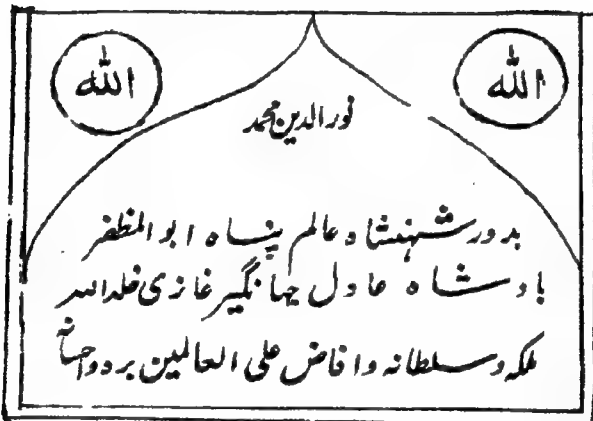 الله
الله
نورالدین محمد
بدور شہنشاہ عالم پناہ ابوالمظفر
بادشاہ عادل جہانگیر غازی خلد اللہ
ملکہ و سلطانہ و افاض علی العالمین بردواحسانہ